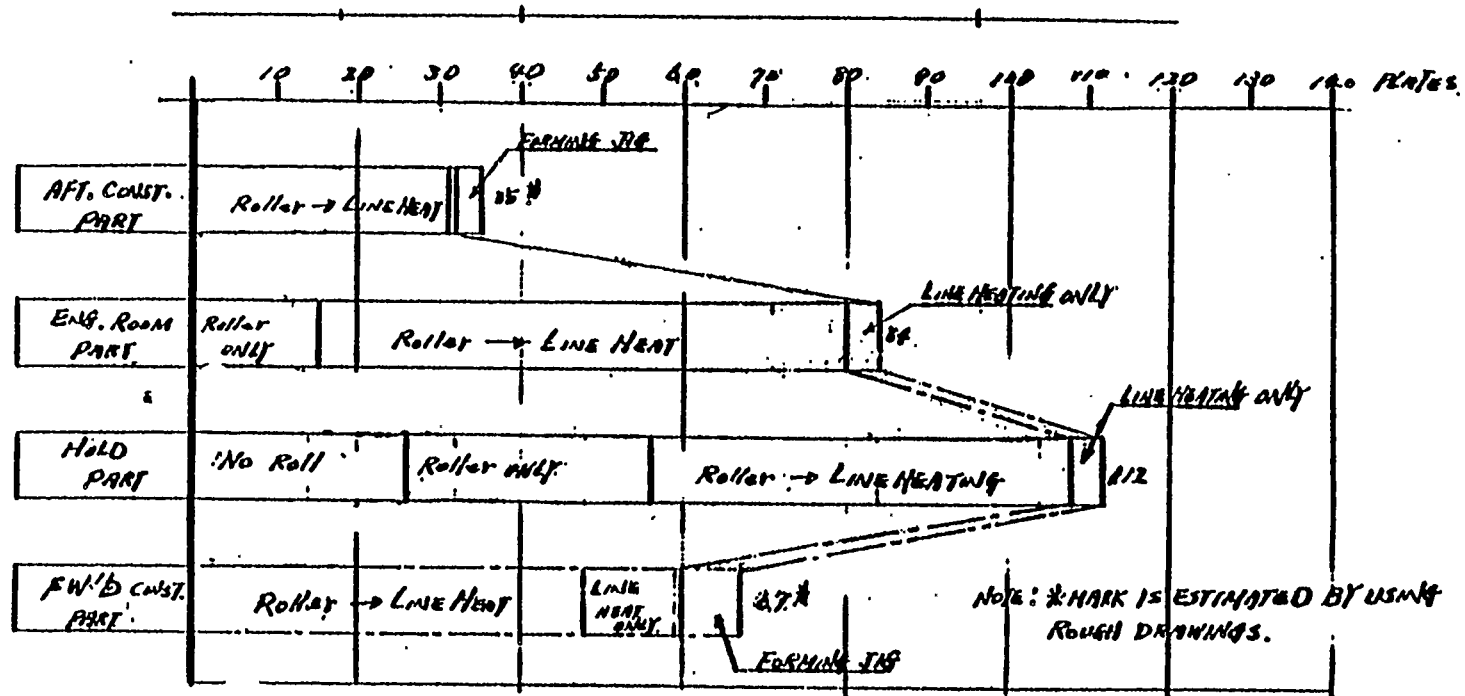 10 20 30 40 50 60 70 80 90 100 110 120 130 140 PLATES
FORMING JIG
AFT. CONST.
PART
Roller → LINE HEAT
35*
LINE HEATING ONLY
ENG. ROOM
PART
Roller
ONLY
Roller → LINE HEAT
84
LINE HEATING ONLY
HOLD
PART
No Roll
Roller ONLY.
Roller → LINE HEATING
112
FW'D CONST.
PART
Roller → LINE HEAT
LINE
HEAT
ONLY
67*
FORMING JIG
NOTE: * MARK IS ESTIMATED BY USING
ROUGH DRAWINGS.